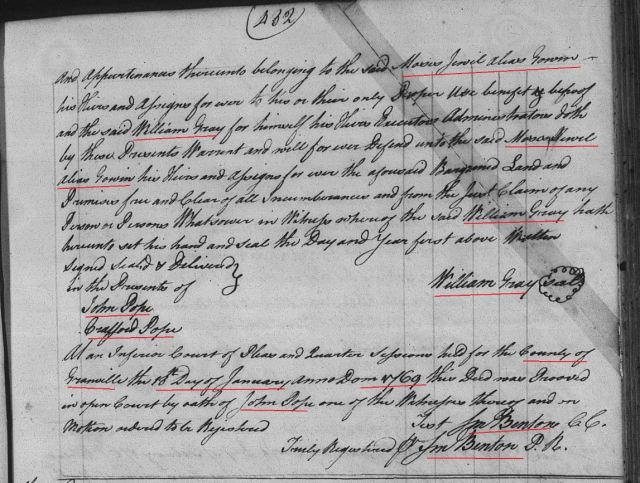 432
And Appurtenances thereunto belonging to the said Moses Jewil alias Gowin
his Heirs and Assigns for ever to his or their only Proper Use benefit & behoof
and the said William Gray for himself his Heirs Executors Administrators doth
by these Presents Warrant and will for ever Defend unto the said Moses Newel
alias Gowin his Heirs and Assigns for ever the aforesaid Bargained Land and
Premises free and Clear of all Incumberances and from the Just Claim of any
Person or Persons Whatsoever in Witness whereof the said William Gray hath
hereunto set his hand and Seal the Day and Year first above Written
Signed Seald & Delivered
in the Presents of
William Gray Seal
John Pope
Crafford Pope
At an Inferior Court of Pleas and Quarter Sessions held for the County of
Granville the 18th Day of January Anno Dom 1769 this Deed was Prooved
in open Court by oath of John Pope one of the Witnesses thereof and on
Motion ordered to be Registered
Test Sm Benton C. C.
Truly Registered Sm Benton P. R.